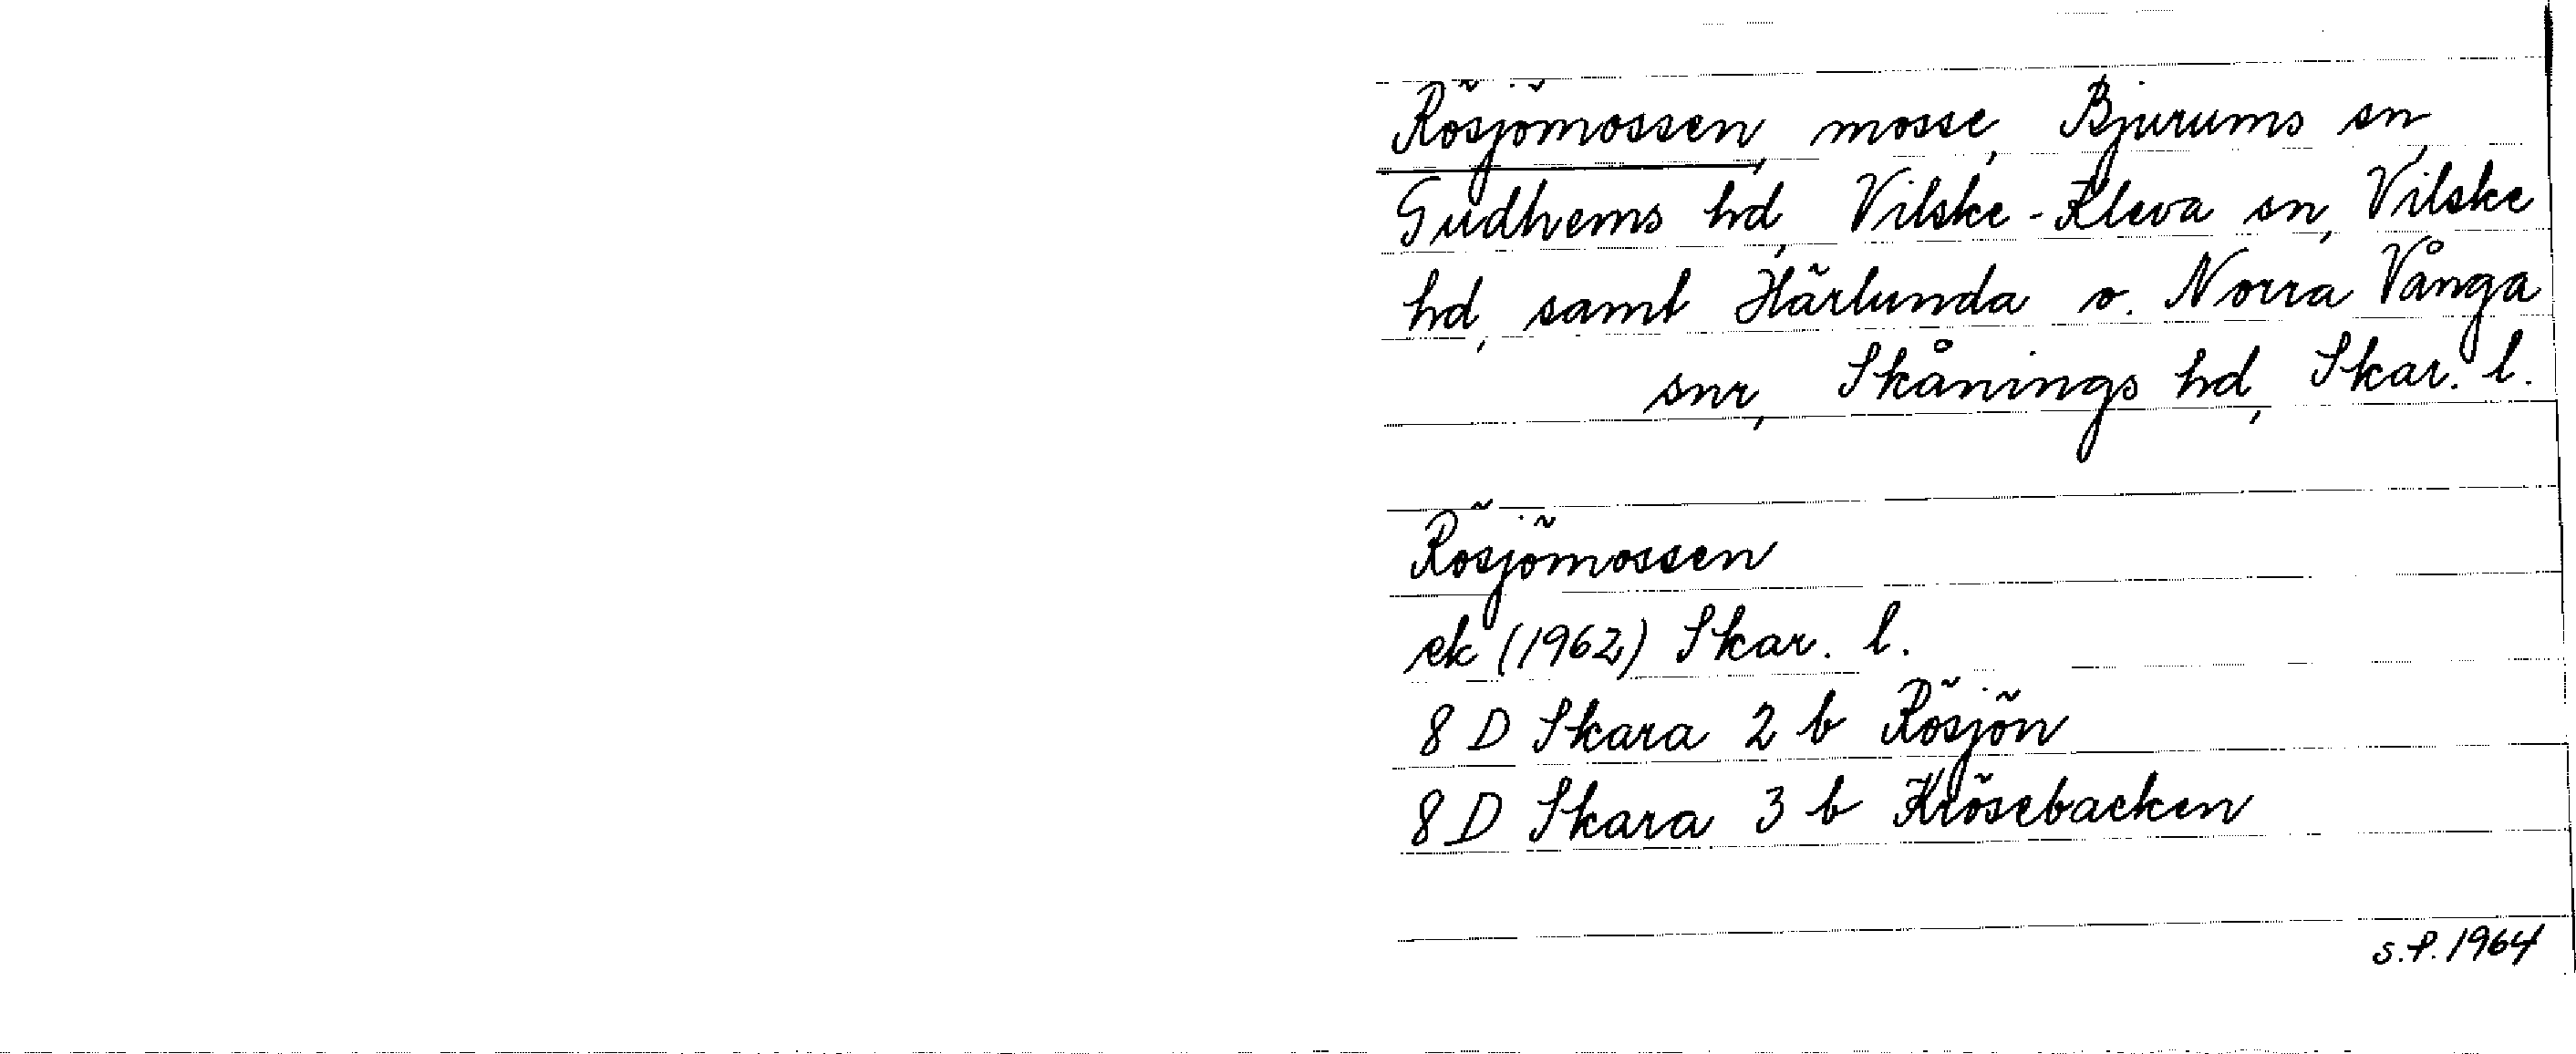 Rösjömossen, mosse, Bjurums sn,
Gudhems hd, Vilske-Kleva sn, Vilske
hd, samt Härlunda o. Norra Vånga
snr, Skånings hd, Skar. l.
Rösjömossen
ek (1962) Skar. l.
8 D Skara 2 b Rösjön
8 D Skara 3 b Krösebacken
S.P. 1964